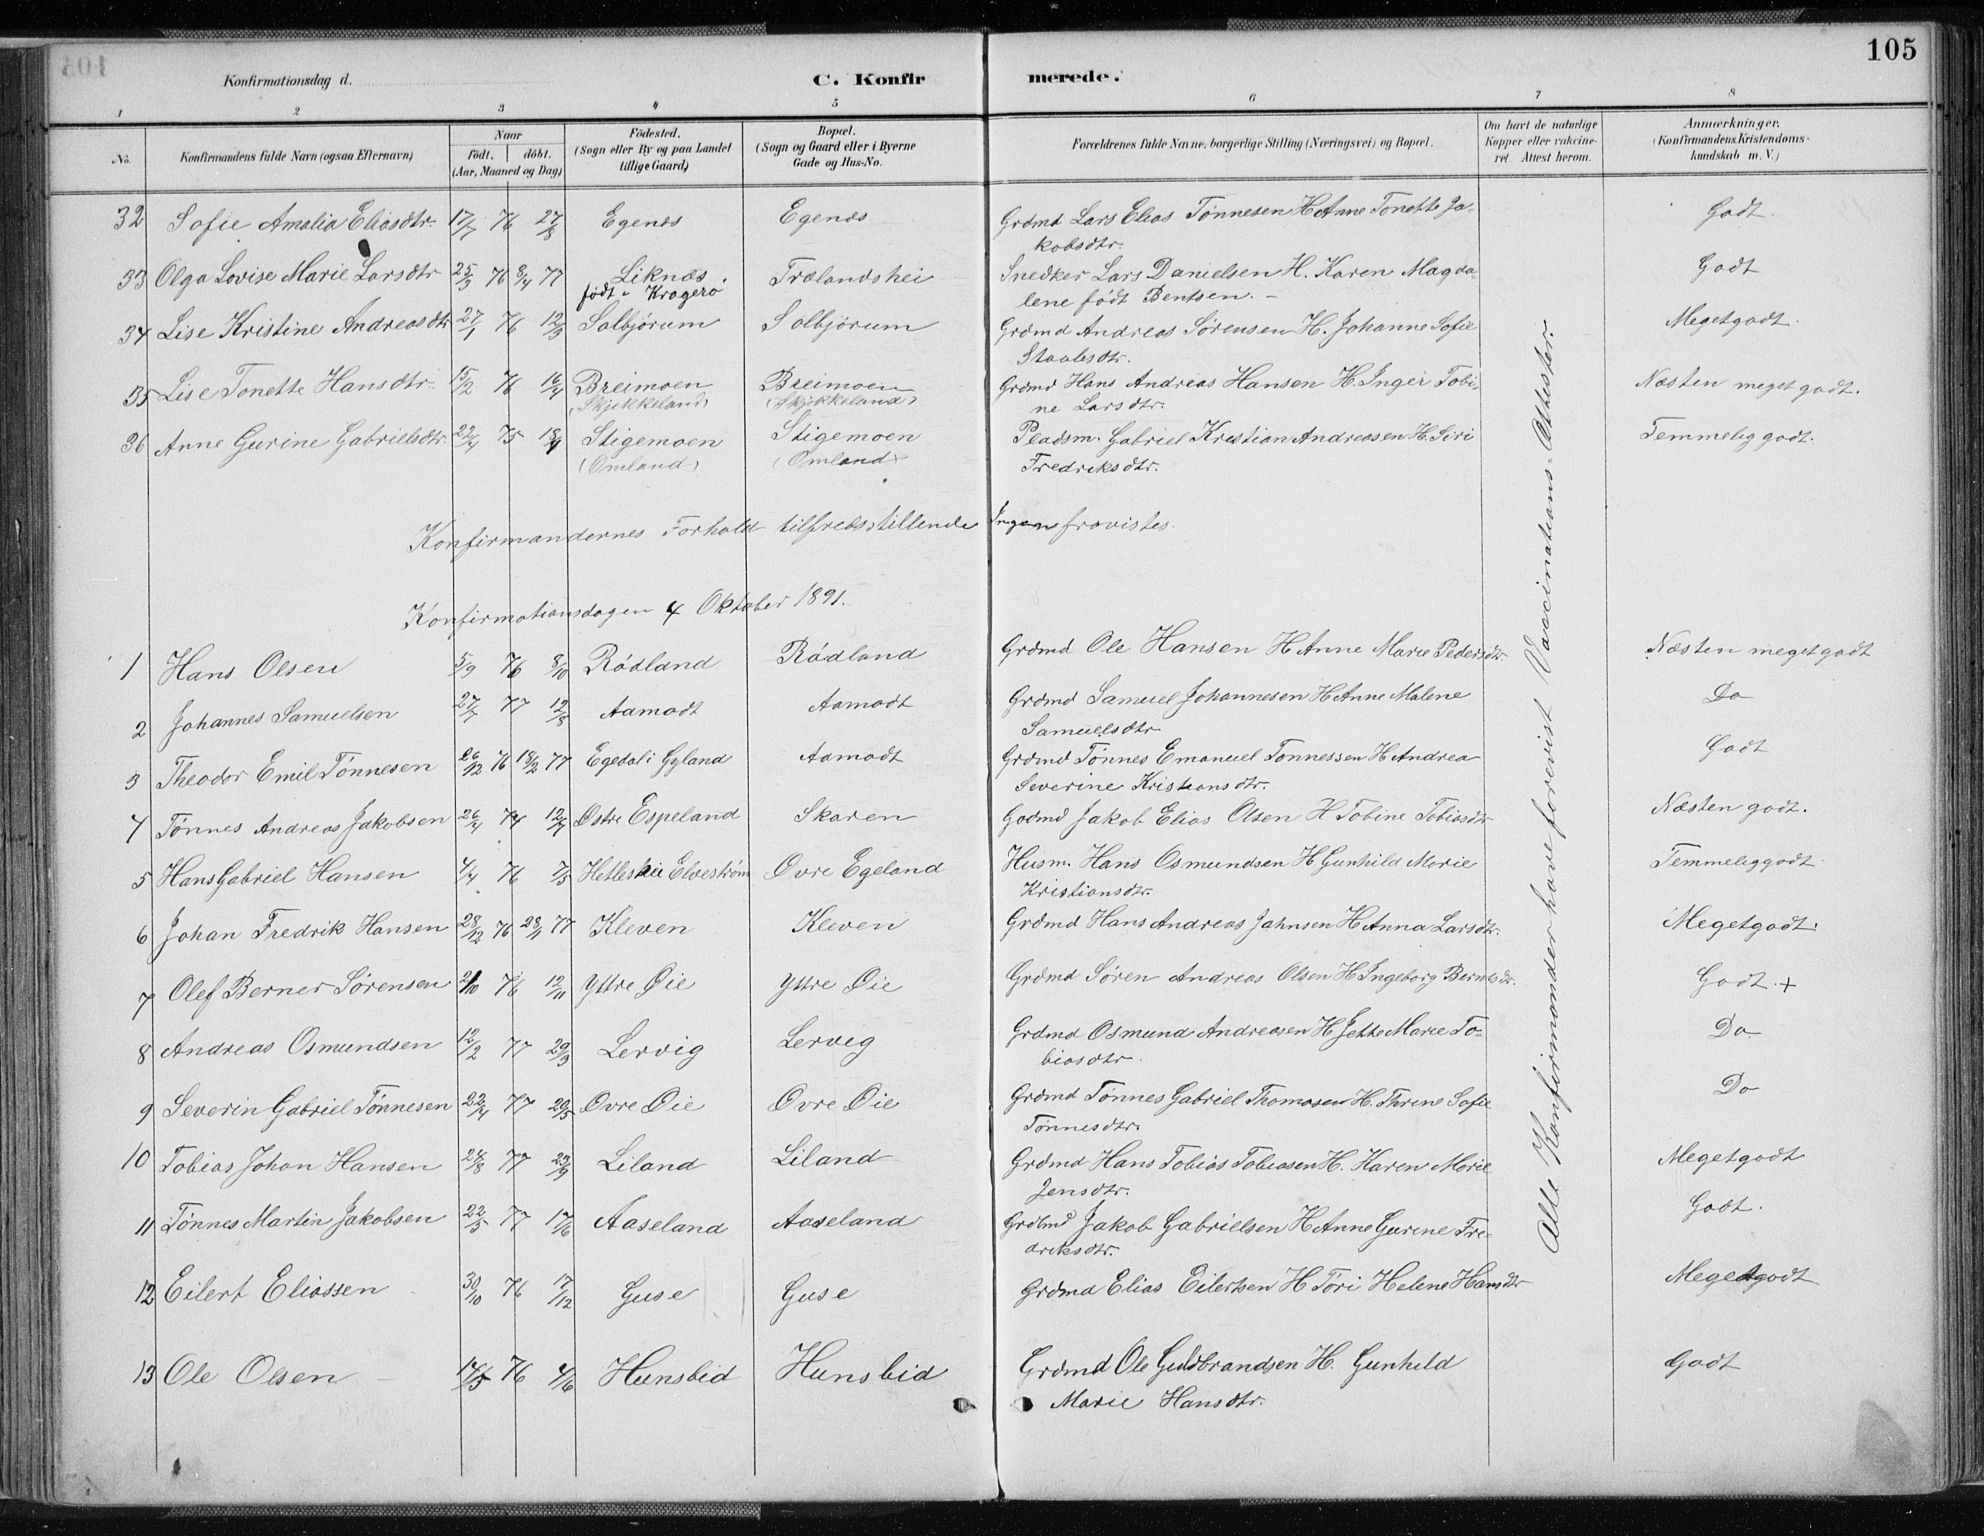 105
Konfirmationsdag d. C. Konfirmerede.
1 2 3 4 5 6 7 8
No. Konfirmandens fulde Navn (ogsaa Efternavn) Naar Födt. döbt. (Aar, Maaned og Dag) Födested. (Sogn eller By og paa Landet tillige Gaard) Bopæl. (Sogn og Gaard eller i Byerne Gade og Hus-No. Forældrenes fulde Navne, borgerlige Stilling (Næringsvei) og Bopæl. Om havt de naturlige Kopper eller vakcineret. Attest herom. Anmærkninger. (Konfirmandens Kristendomskundskab m. V.)
32 Sofie Amalia Eliasdtr. 17/7 76 27/8 Egenæs Egenæs Grdmd Lars Elias Tönnesen H Anne Tonette Ja-
kobsdtr. Godt.
33 Olga Lovise Marie Larsdtr 25/3 76 8/4 77 Liknæs. Trælandshei Snedker Lars Danielsen H. Karen Magda- Godt
født i Kragerø lene født Bentsen. –
34 Lise Kristine Andreasdtr 27/1 76 12/3 Solbjørum Solbjørum Grdmd Andreas Sørensen H. Johanne Sofie Megetgodt.
Staalesdtr.
35 Lise Tonette Hansdtr. 15/2 76 16/4 Breimoen Breimoen Grdmd Hans Andreas Hansen H. Inger Tobi- Næsten meget godt.
(Skjekkeland) (Skjekkeland) ne Larsdtr.
36 Anne Gurine Gabrielsdtr. 22/4 75 18/4 Stigemoen Stigemoen Pladsm. Gabriel Kristian Andreasen H. Siri Temmelig godt.
(Omland) (Omland) Fredriksdtr.
Konfirmandernes Forhold tilfredsstillende Ingen fravistes.
Konfirmationsdagen 4 Oktober 1891.
1 Hans Olsen 5/9 76 8/10 Rödland Rödland Grdmd Ole Hansen H Anne Marie Pedersdtr Næsten megetgodt
2 Johannes Samuelsen 27/7 77 12/8 Aamodt Aamodt Grdmd Samuel Johannesen H Anne Malene Do
Samuelsdtr
3 Theodor Emil Tönnesen 26/12 76 18/2 77 Egedal i Gyland Aamodt Grdmd Tønnes Emanuel Tønnessen H Andrea Godt
Severine Kristiansdtr.
4 Tönnes Andreas Jakobsen 26/4 74 12/7 Østre Espeland Skaren Gadmd Jakob Elias Olsen H Tobine Tobiasdtr Næsten godt.
5 Hans Gabriel Hansen 4/4 76 7/5 Hetleskei Elvestrøm Øvre Egeland Husm. Hans Osmundsen H Gunhild Marie Temmeliggodt.
Kristiansdtr.
6 Johan Fredrik Hansen 28/12 76 28/1 77 Kleven Kleven Grdmd Hans Andreas Jahnsen H Anna Larsdtr. Megetgodt.
7 Olef Berner Sörensen 2/10 76 12/11 Yttre Øie Yttre Øie Grdmd Søren Andreas Olsen H Ingeborg Berntsdtr. Godt. +
8 Andreas Osmundsen 12/2 77 29/3 Lervig Lerveg Grdmd Osmund Andreasen H Jette Marie To- Do
biasdtr.
9 Severin Gabriel Tönnesen 22/4 77 20/5 Øvre Øie Øvre Øie Grdmd Tønnes Gabriel Thomasen H. Thrine Sofie Do
Tønnesdtr.
10 Tobias Johan Hansen 24/8 77 23/9 Liland Liland Grdmd Hans Tobias Tobiassen H. Karen Marie Megetgodt
Jensdtr.
11 Tönnes Martin Jakobsen 22/5 77 17/6 Aaseland Aaseland Grdmd Jakob Gabrielsen H Anne Gurine Fre- Godt.
driksdtr.
12 Eilert Eliassen 30/10 76 17/12 Guse Guse Grdmd Elias Eilertsen H Töri Helene Hansdtr Megetgodt
13 Ole Olsen – 14/5 76 4/6 Hunsbid Hunsbid Grdmd Ole Guldbrandsen H. Gunhild Godt
Marie Hansdtr.
Alle Konfirmander have forevist Vaccinations-Attester.